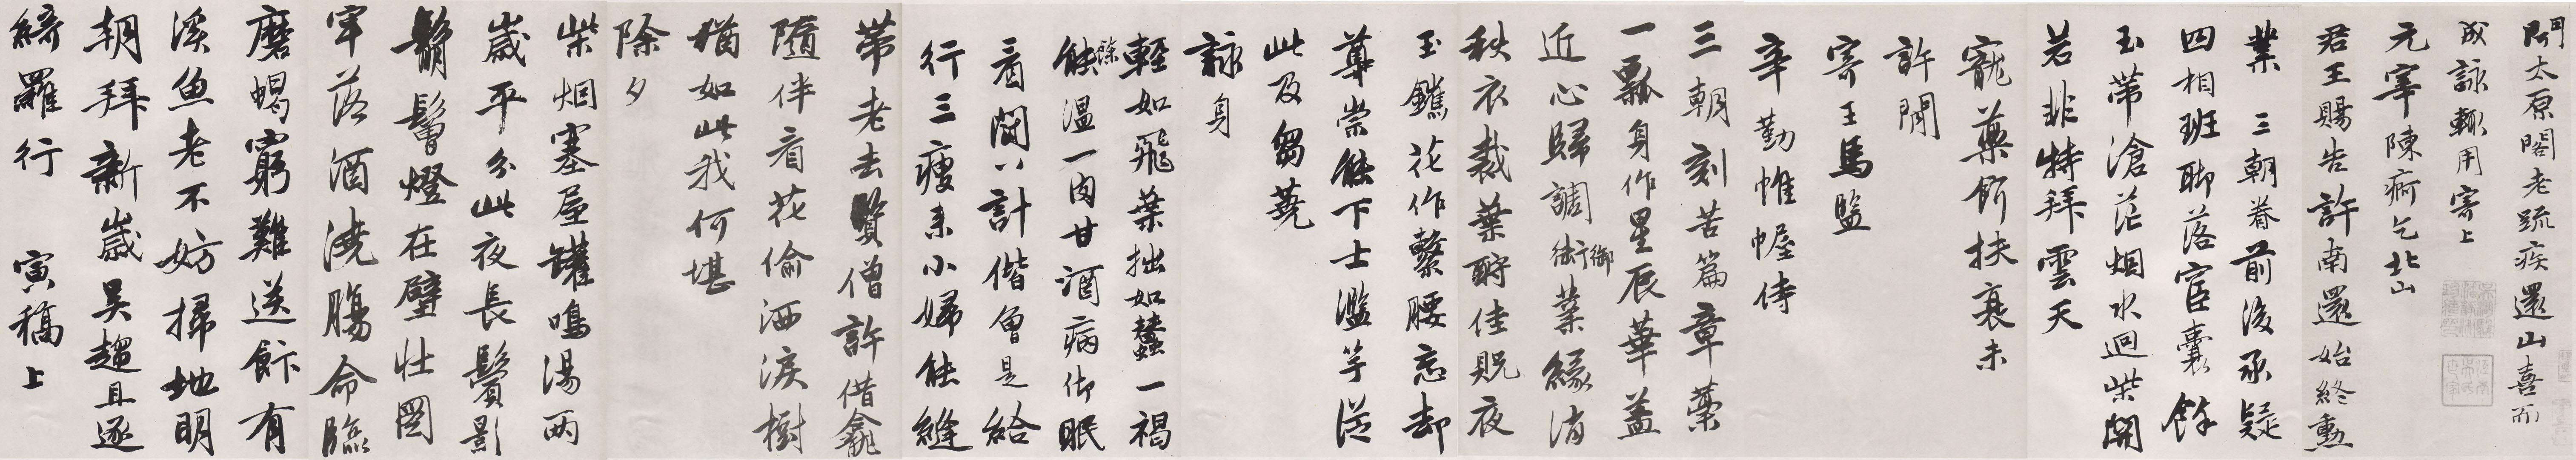 聞太原閣老疏疾還山喜而
成詠輒用寄上
元宰陳痾乞北山
君王賜告許南還始終勳
業三朝眷前後承疑
四相班聊落宦囊餘
玉帶滄茫烟水迥柴關
若非特拜雲天
寵藥餌扶衰未
許閒
寄王馬監
辛勤帷幄侍
三朝刻苦篇章藁
一瓢身作星辰華蓋
近心歸調御業緣消
秋衣裁葉酧佳貺夜
玉鑣花作繫腰忘却
尊崇能下士濫竽從
此及芻蕘
詠身
輕如飛葉拙如蠶一褐
餘溫一肉甘酒病仰眠
看閏八計偕曾是給
行三瘦来小婦能縫
帶老去賢僧許借龕
隨伴看花偷洒淚樹
猶如此我何堪
除夕
柴烟塞屋罐鳴湯兩
歲平分此夜長鬢影
鬅鬙燈在壁壯圖
牢落酒澆腸命臨
磨蝎窮難送飰有
溪魚老不妨掃地明
朝拜新歲吳趨且逐
綺羅行 寅稿上